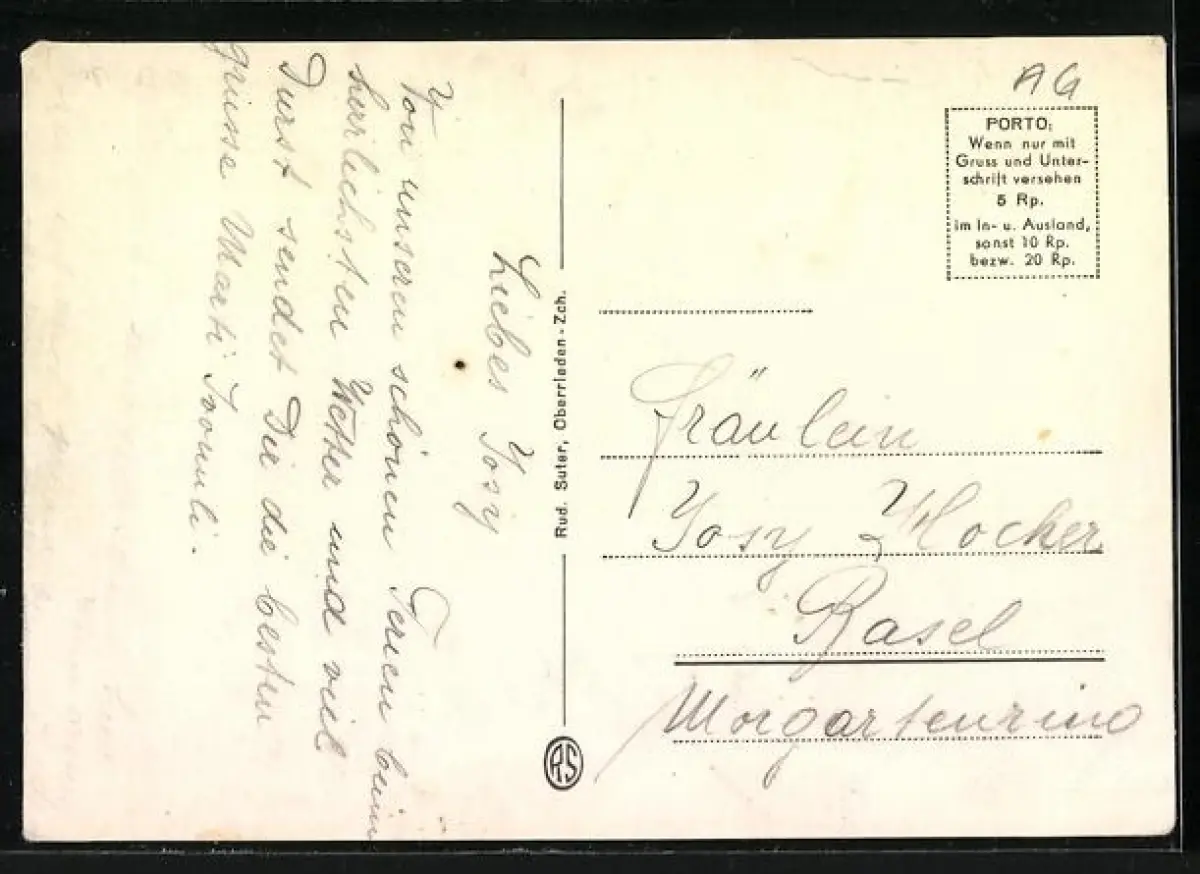 Liebes Yosy
Von unseren schönen Ferien beim
herrlichsten Wetter und viel
Durst sendet Die die besten
grüsse Marti Trouli.
Rud. Suter, Oberrieden - Zch.
RS
AG
PORTO:
Wenn nur mit
Gruss und Unter-
schrift versehen
5 Rp.
im In- u. Ausland,
sonst 10 Rp.
bezw. 20 Rp.
Fräulein
Yosy Hocker
Basel
Morgartenring